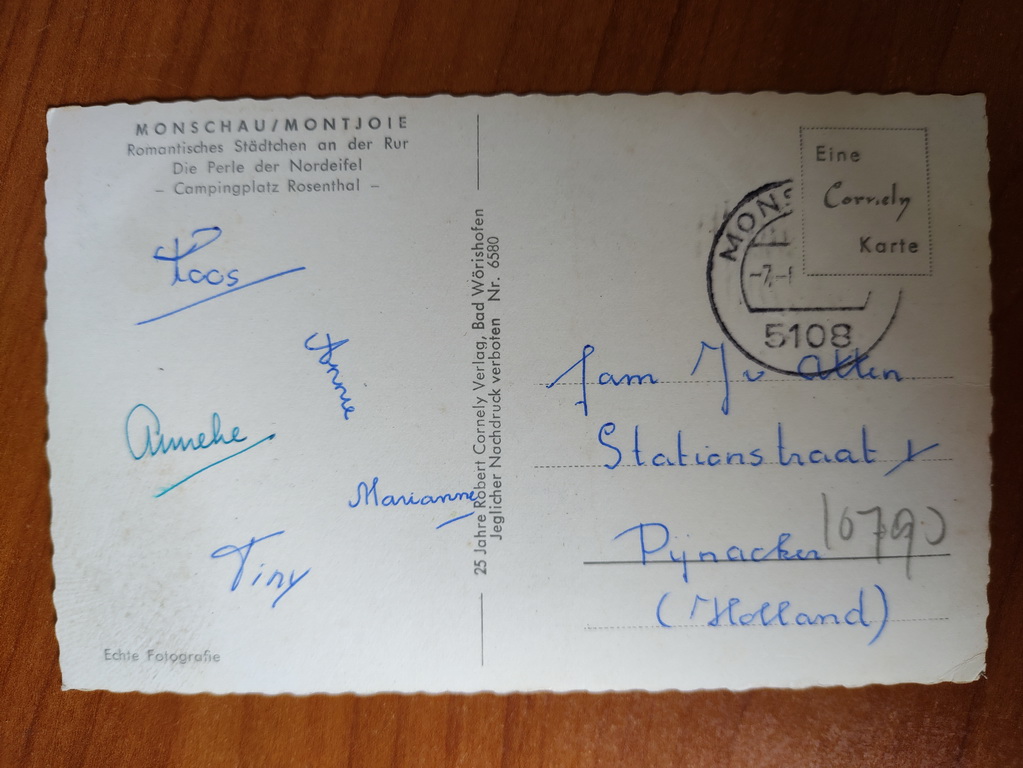 MONSCHAU/MONTJOIE
Romantisches Städtchen an der Rur
Die Perle der Nordeifel
– Campingplatz Rosenthal –
Toos
Annie
Anneke
Marianne
Tiny
Echte Fotografie
25 Jahre Robert Cornely Verlag, Bad Wörishofen
Jeglicher Nachdruck verboten Nr. 6580
Eine
Cornely
Karte
MONS
-7.-
5108
fam J v Atten
Stationstraat
Pijnacker
(Holland)